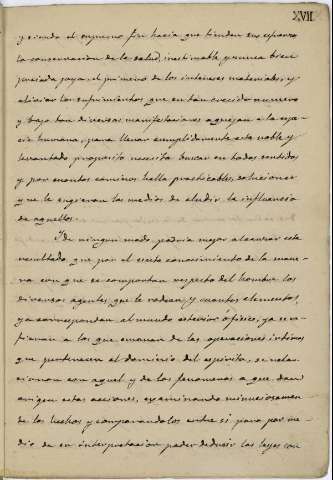 XVII
y siendo el supremo fin hacia que tienden sus esfuerzos
la conservacion de la salud, inestimable y nunca bien
preciada joya, el primero de los intereses materiales, y
aliviar los sufrimientos que en tan crecido numero
y bajo tan diversas manifestaciones aquejan a la espe-
cie humana, para llenar cumplidamente este noble y
levantado proposito necesita buscar en todos sentidos
y por cuantos caminos halla practicables, soluciones
que le sugieran los medios de eludir la influencia
de aquellos.
De ningun modo podria mejor alcanzar este
resultado, que por el exacto conocimiento de la mane-
ra con que se comportan respecto del hombre los
diversos agentes que le rodean, y cuantos elementos,
ya correspondan al mundo exterior ó físico, ya se re-
fieran a los que emanan de las operaciones intimas
que pertenecen al dominio del espiritu, se rela-
cionan con aquel y de los fenomenos a que dan
origen estas acciones, examinando minuciosamen-
te los hechos y comparandolos entre si para por me-
dio de su interpretacion poder deducir las leyes con